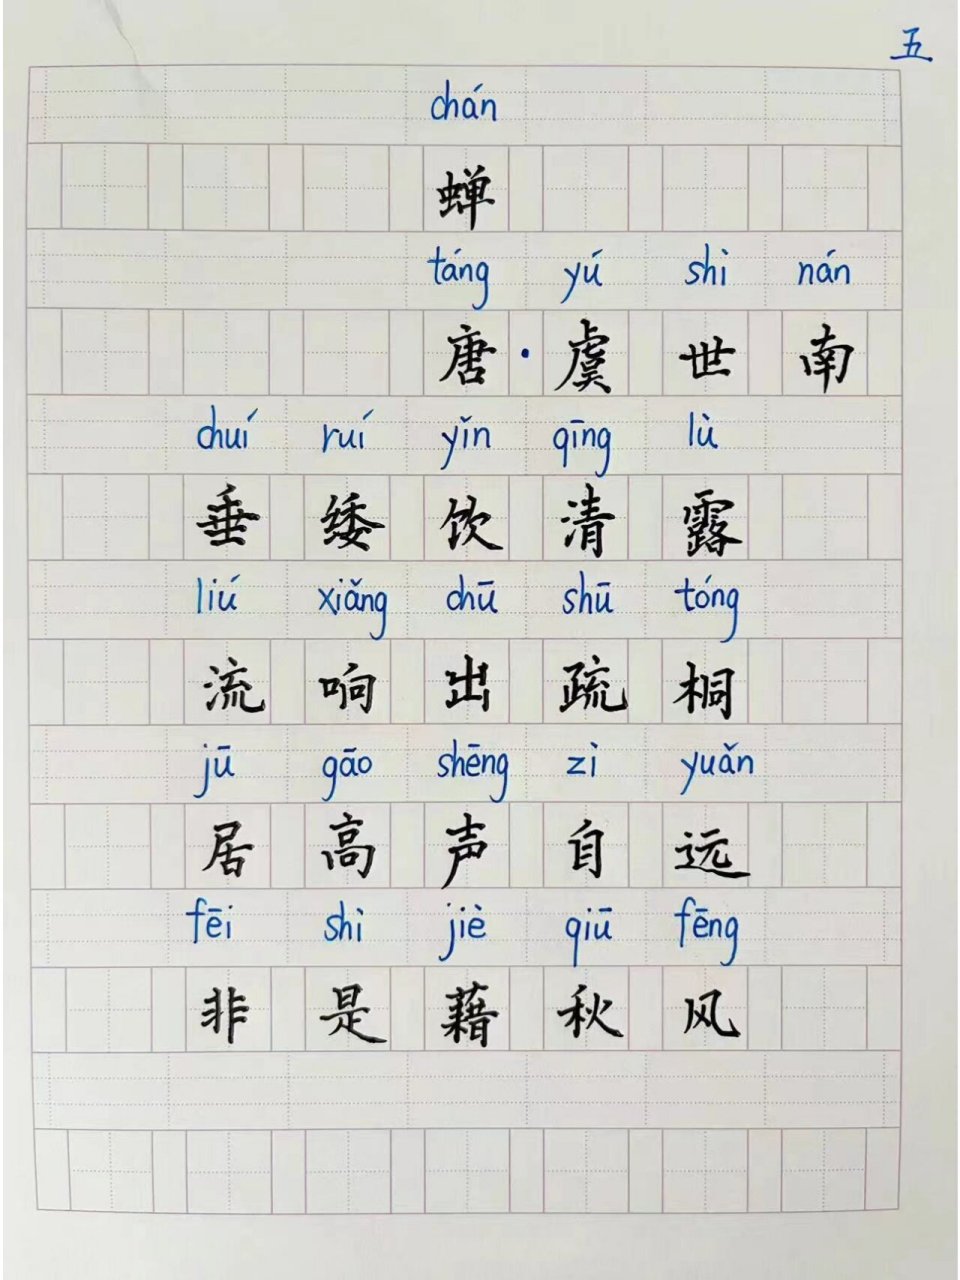 五
chán
蝉
táng yú shì nán
唐·虞世南
chuí ruí yǐn qīng lù
垂緌饮清露
liú xiǎng chū shū tóng
流响出疏桐
jū gāo shēng zì yuǎn
居高声自远
fēi shì jiè qiū fēng
非是藉秋风